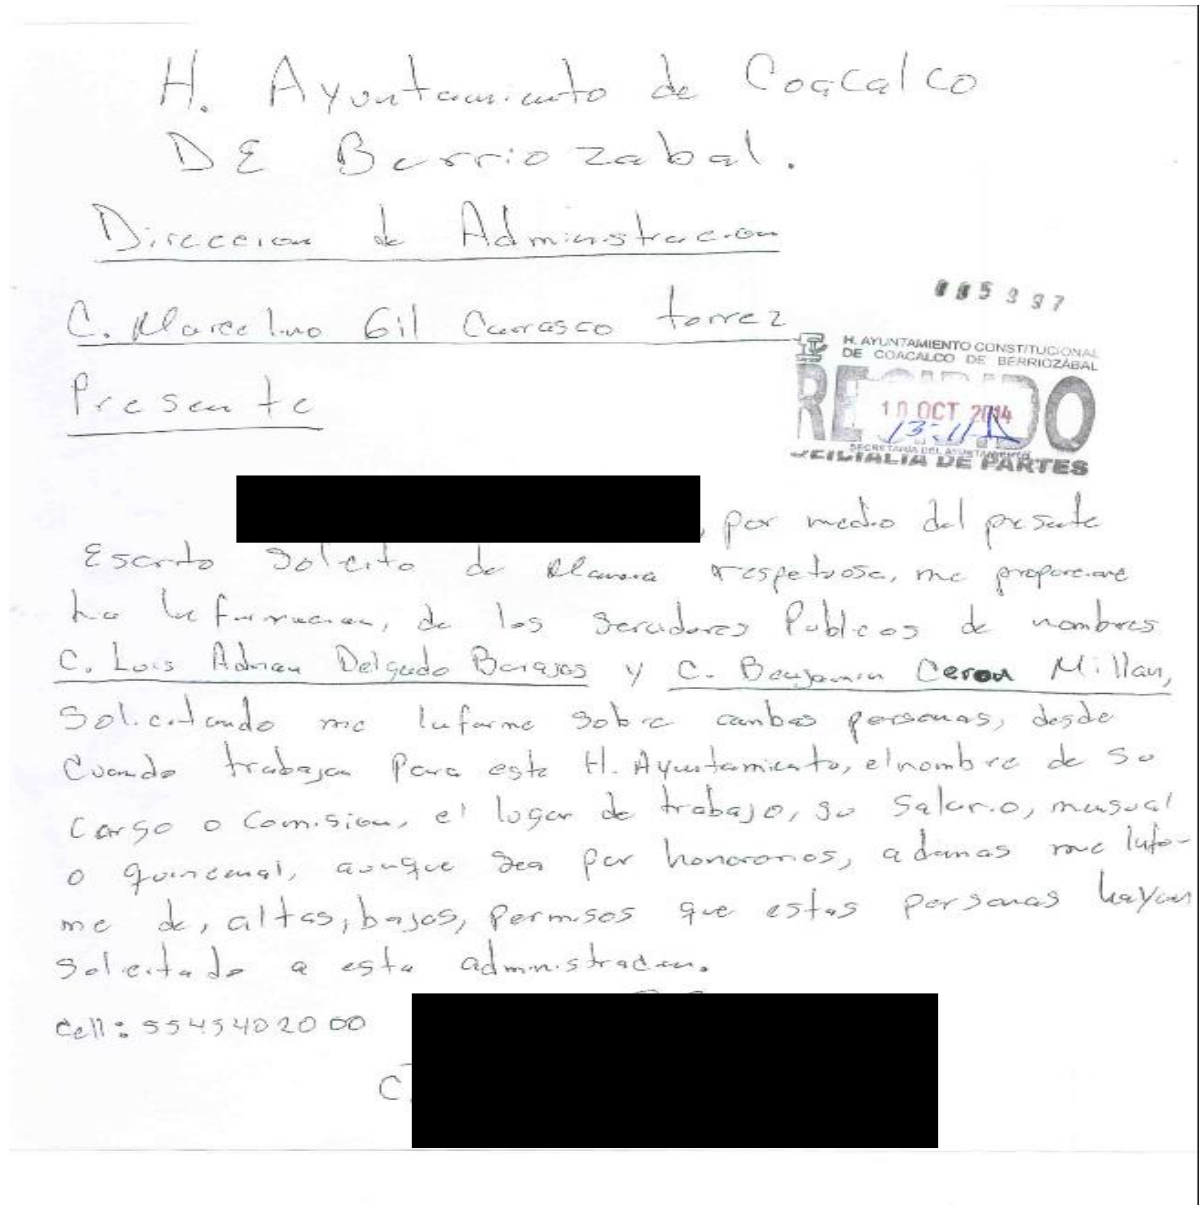 H. Ayuntamiento de Coacalco
DE Berriozabal.
Direccion de Administracion
C. Marcelino Gil Carrasco torrez
Presente
5397
H. AYUNTAMIENTO CONSTITUCIONAL
DE COACALCO DE BERRIOZÁBAL
RECIBIDO
10 OCT 2014
SECRETARIA DEL AYUNTAMIENTO
OFICIALIA DE PARTES
, por medio del presente
Escrito Solicito de Manera respetuosa, me proporcione
La Informacion, de los Servidores Publicos de nombres
C. Luis Adrian Delgado Barajas y C. Benjamin Ceron Millan,
Solicitando me Informe sobre ambas personas, desde
Cuando trabajan Para este H. Ayuntamiento, el nombre de su
Cargo o Comision, el lugar de trabajo, su Salario, mensual
o quincenal, aunque sea por honorarios, ademas me Infor-
me de, altas, bajas, Permisos que estas personas hayan
Solicitado a esta administracion.
Cell: 5545402000
C.